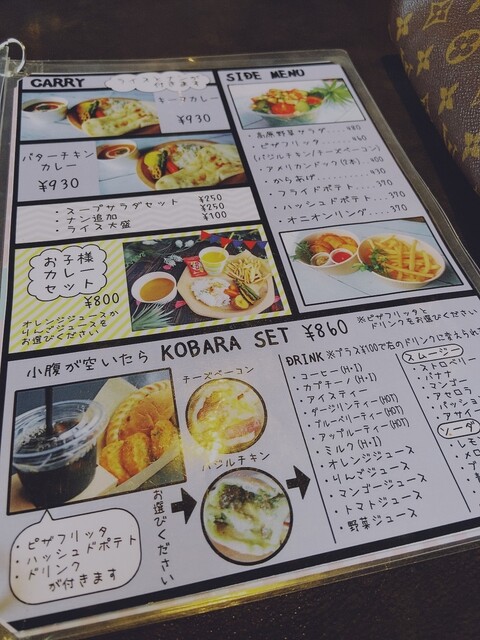 CARRY
キーマカレー
¥930
バターチキン
カレー
¥930
・スープサラダセット ¥250
・ナン追加 ¥250
・ライス大盛 ¥100
お子様
カレー
セット
¥800
オレンジジュースか
りんごジュースを
お選びください
SIDE MENU
・高原野菜サラダ....480
・ピザフリッタ........460
(バジルチキン/チーズベーコン)
・アメリカンドック(2本) 400
・からあげ.........450
・フライドポテト....370
・ハッシュドポテト....370
・オニオンリング....370
小腹が空いたら KOBARA SET ¥860
※ピザフリッタと
ドリンクをお選びください
チーズベーコン
バジルチキン
お選びください
・ピザフリッタ
・ハッシュドポテト
・ドリンク
が付きます
DRINK ※プラス¥100で右のドリンクに変えられ
・コーヒー(H・I)
・カプチーノ(H・I)
・アイスティー
・ダージリンティー(HOT)
・ブルーベリーティー(HOT)
・アップルティー(HOT)
・ミルク(H・I)
・オレンジジュース
・りんごジュース
・マンゴージュース
・トマトジュース
・野菜ジュース
スムージー
・ストロベリー
・バナナ
・マンゴー
・アセロラ
・パッショ
・アサイー
ソーダ
・レモ
・メロ